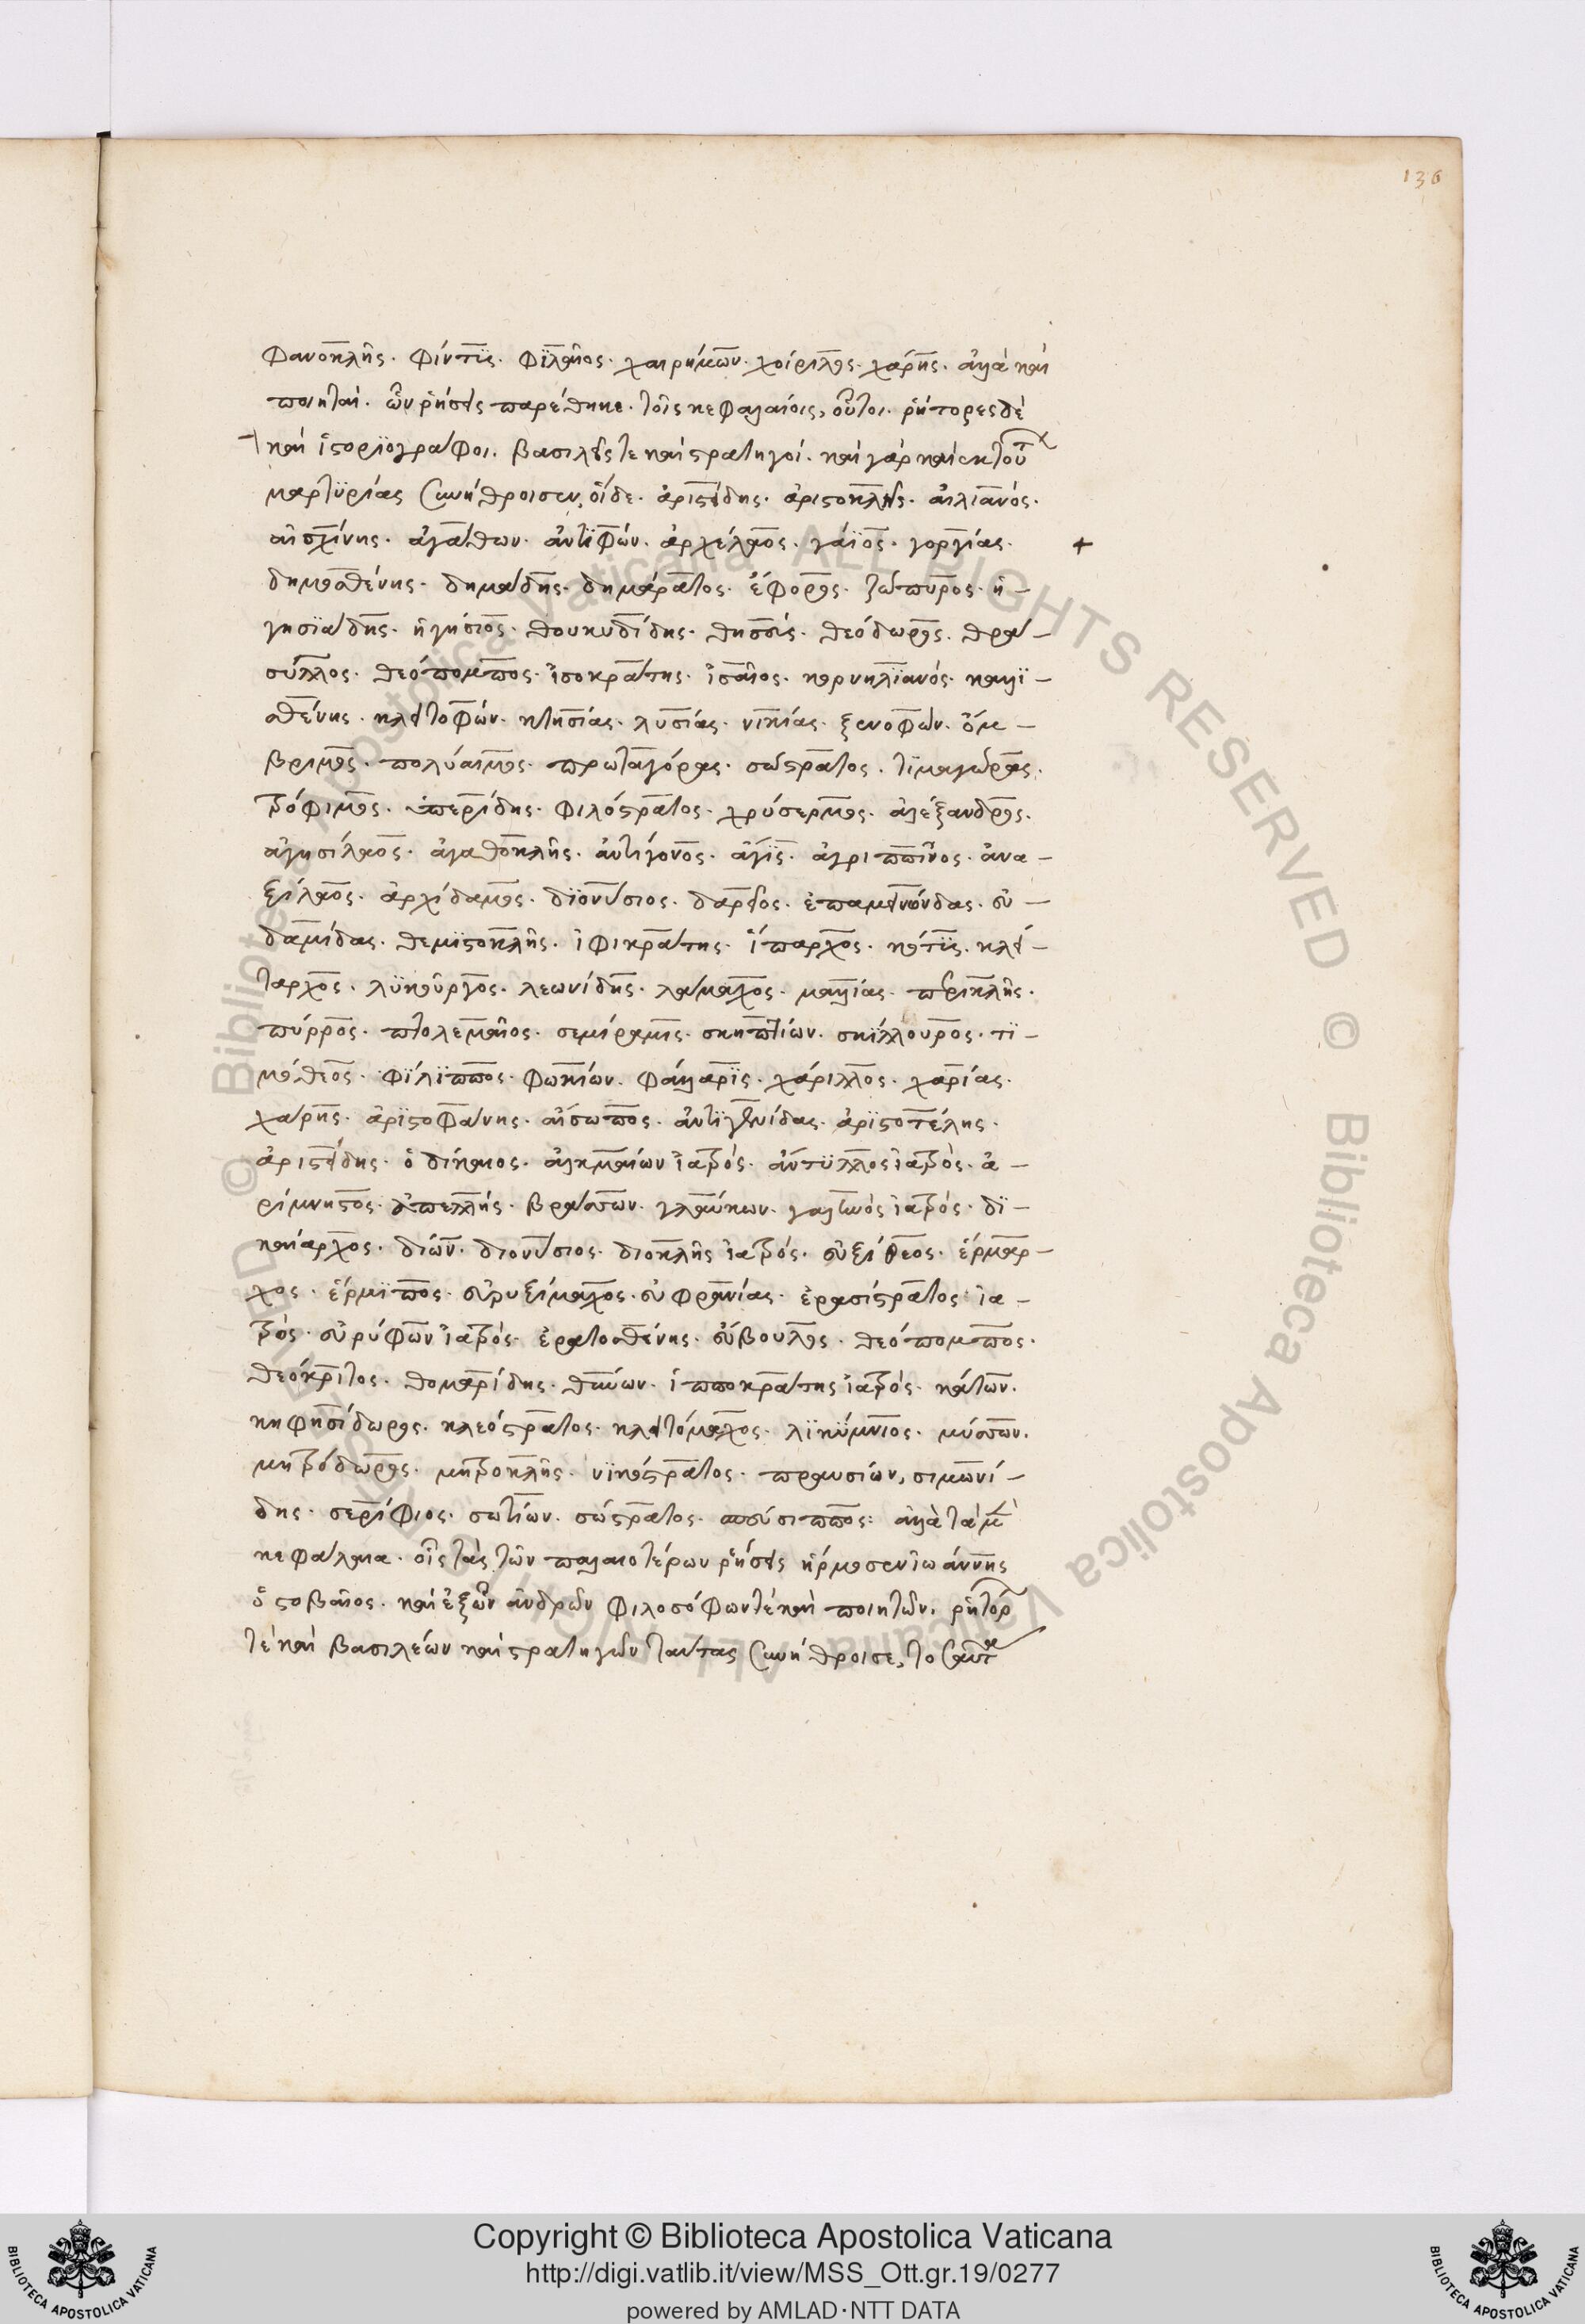 136
Φανοκλῆς. Φίντϊς. Φϊλαῖος. χαιρήμων. χοίριλος. χάρης. ἀλλὰ καὶ
ποιηταὶ. ὧν ῥήσεις παρέθηκε. τοῖς κεφαλαίοις, οὗτοι. ῥήτορες δὲ
καὶ ἱστορϊογράφοι. βασιλεῖς τε καὶ στρατηγοί. καὶ γὰρ καὶ ἐκ τούτ
μαρτϋρίας συνήθροισεν, οἵδε. ἀριστείδης. ἀριστοκλῆς. αἰλιανός.
αἰσχίνης. ἀγάθων. ἀντϊφών. ἀρχέλαος. γάϊος. γοργίας.
δημοσθένης. δημάδης. δημάρατος. ἔφορος. ζώπυρος. ἡ-
γησϊάδης. ἡγήσιος. θουκυδίδης. θησσίς. θεόδωρος. θρα-
σύλλος. θεόπομπος. ἰσοκράτης. ἰσαῖος. κορνηλϊανός. καλλϊ-
σθένης. κλειτοφών. κτησίας. λυσίας. νικίας. ξενοφών. ὄμ-
βριμος. πολύαιμος. πρωταγόρας. σώστρατος. τϊμαγώρας.
τρόφιμος. ὑπερίδης. φιλόστρατος. χρύσερμος. ἀλέξανδρος.
ἀγησίλαος. ἀγαθοκλῆς. ἀντίγονος. ἄγϊς. ἀγριππῖνος. ἀνα-
ξίλαος. ἀρχίδαμος. δϊονύσιος. δαρεῖος. ἐπαμεινώνδας. εὐ-
δαμίδας. θεμϊστοκλῆς. ἰφικράτης. ἵπαρχος. κότϊς. κλεί-
ταρχος. λϋκοῦργος. λεωνίδης. λάμαχος. μαλλίας. περικλῆς.
πύρρος. πτολεμαῖος. σεμίραμις. σκηπτίων. σκίλλουρος. τϊ-
μόθεος. φϊλϊππος. φωκίων. φάλλαρϊς. χάριλλος. χαρίας.
χάρης. ἀρϊστοφάνης. αἴσωπος. ἀντϊγενίδας. ἀρϊστοτέλης.
ἀριστείδης. ὁ δίκαιος. ἀλκμαίων ἰατρός. ἄντϋλλος ἰατρός. ἀ-
ρίμνηστος. ἀπελλής. βρύσων. γλαύκων. γαληνὸς ἰατρός. δϊ-
καίαρχος. δίων. διονύσιος. διοκλῆς ἰατρός. εὐξίθεος. ἕρμαρ-
χος. ἕρμϊπος. εὐρυξίμαχος. εὐφρανίας. ἐρασίστρατος ἰα-
τρός. εὐρύφων ἰατρός. ἐρατοσθένης. εὔβουλος. θεόπομπος.
θεόκριτος. θομαρίδης. θύων. ἱπποκράτης ἰατρός. κάτων.
κηφησίδωρος. κλεόστρατος. κλειτόμαχος. λϊκύμνιος. μύσων.
μητρόδωρος. μητροκλῆς. νϊκόστρατος. πραυσιών, σιμωνί-
δης. σερίφιος. σωτίων. σώστρατος. σπεύσιππος: ἀλλὰ τὰ μὲν
κεφάλαια. οἷς τὰς τῶν παλαιοτέρων ῥήσεις ἥρμοσεν ἰωάννης
ὁ στοβαῖος. καὶ ἐξ ὧν ἀνδρῶν φιλοσόφων τὲ καὶ ποιητῶν. ῥητόρ
τὲ καὶ βασιλέων καὶ στρατηγῶν ταύτας συνήθροισε, τοσαῦτα
Copyright © Biblioteca Apostolica Vaticana
http://digi.vatlib.it/view/MSS_Ott.gr.19/0277
powered by AMLAD·NTT DATA